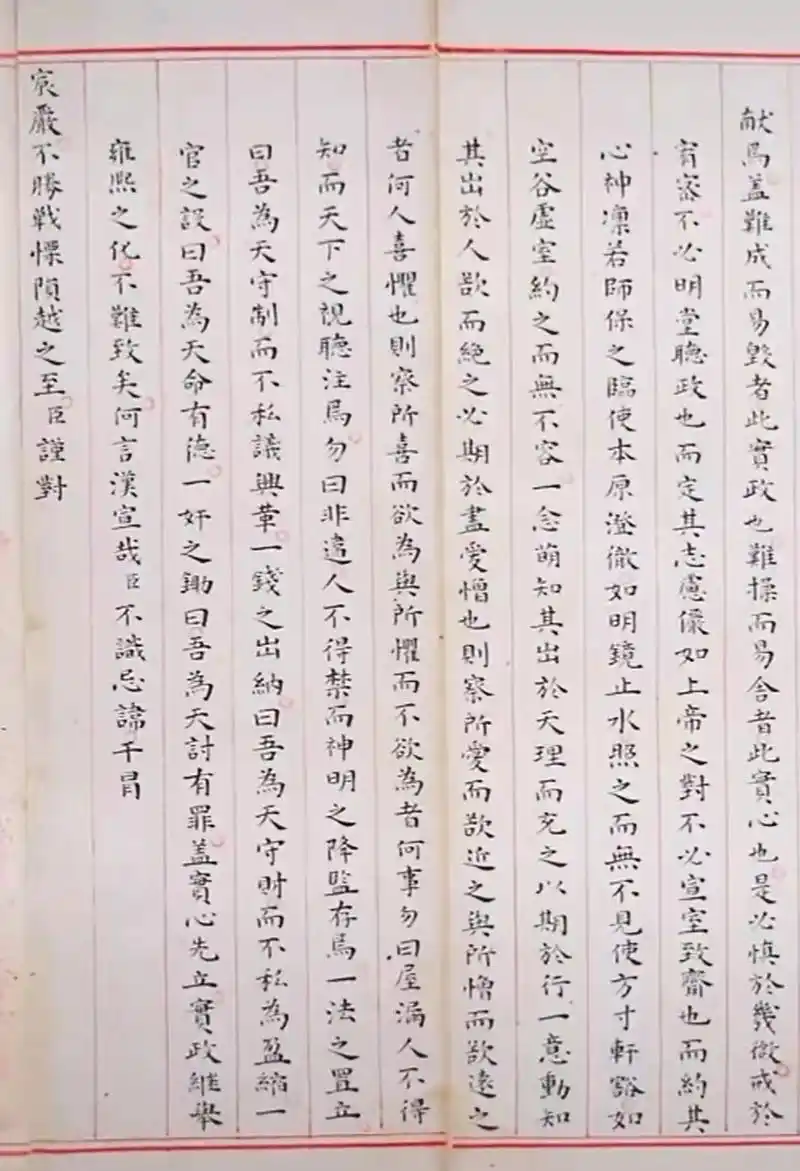 献焉盖難成而易毀者此實政也難操而易舍者此實心也是必慎於幾微戒於
宥密不必明堂聽政也而定其志慮儼如上帝之對不必宣室致齋也而約其
心神凛若師保之臨使本原澄徹如明鏡止水照之而無不見使方寸軒豁如
空谷虛室約之而無不容一念萌知其出於天理而充之以期於行一意動知
其出於人欲而絶之必期於盡愛憎也則察所愛而欲近之與所憎而欲遠之
者何人喜懼也則察所喜而欲為與所懼而不欲為者何事勿曰屋漏人不得
知而天下之視聽注焉勿曰非違人不得禁而神明之降監存焉一法之置立
曰吾為天守制而不私議興革一錢之出納曰吾為天守財而不私為盈縮一
官之設曰吾為天命有德一奸之鋤曰吾為天討有罪盖實心先立實政繼舉
雍熙之化不難致矣何言漢宣哉臣不識忌諱干冒
宸嚴不勝戰慄隕越之至臣謹對